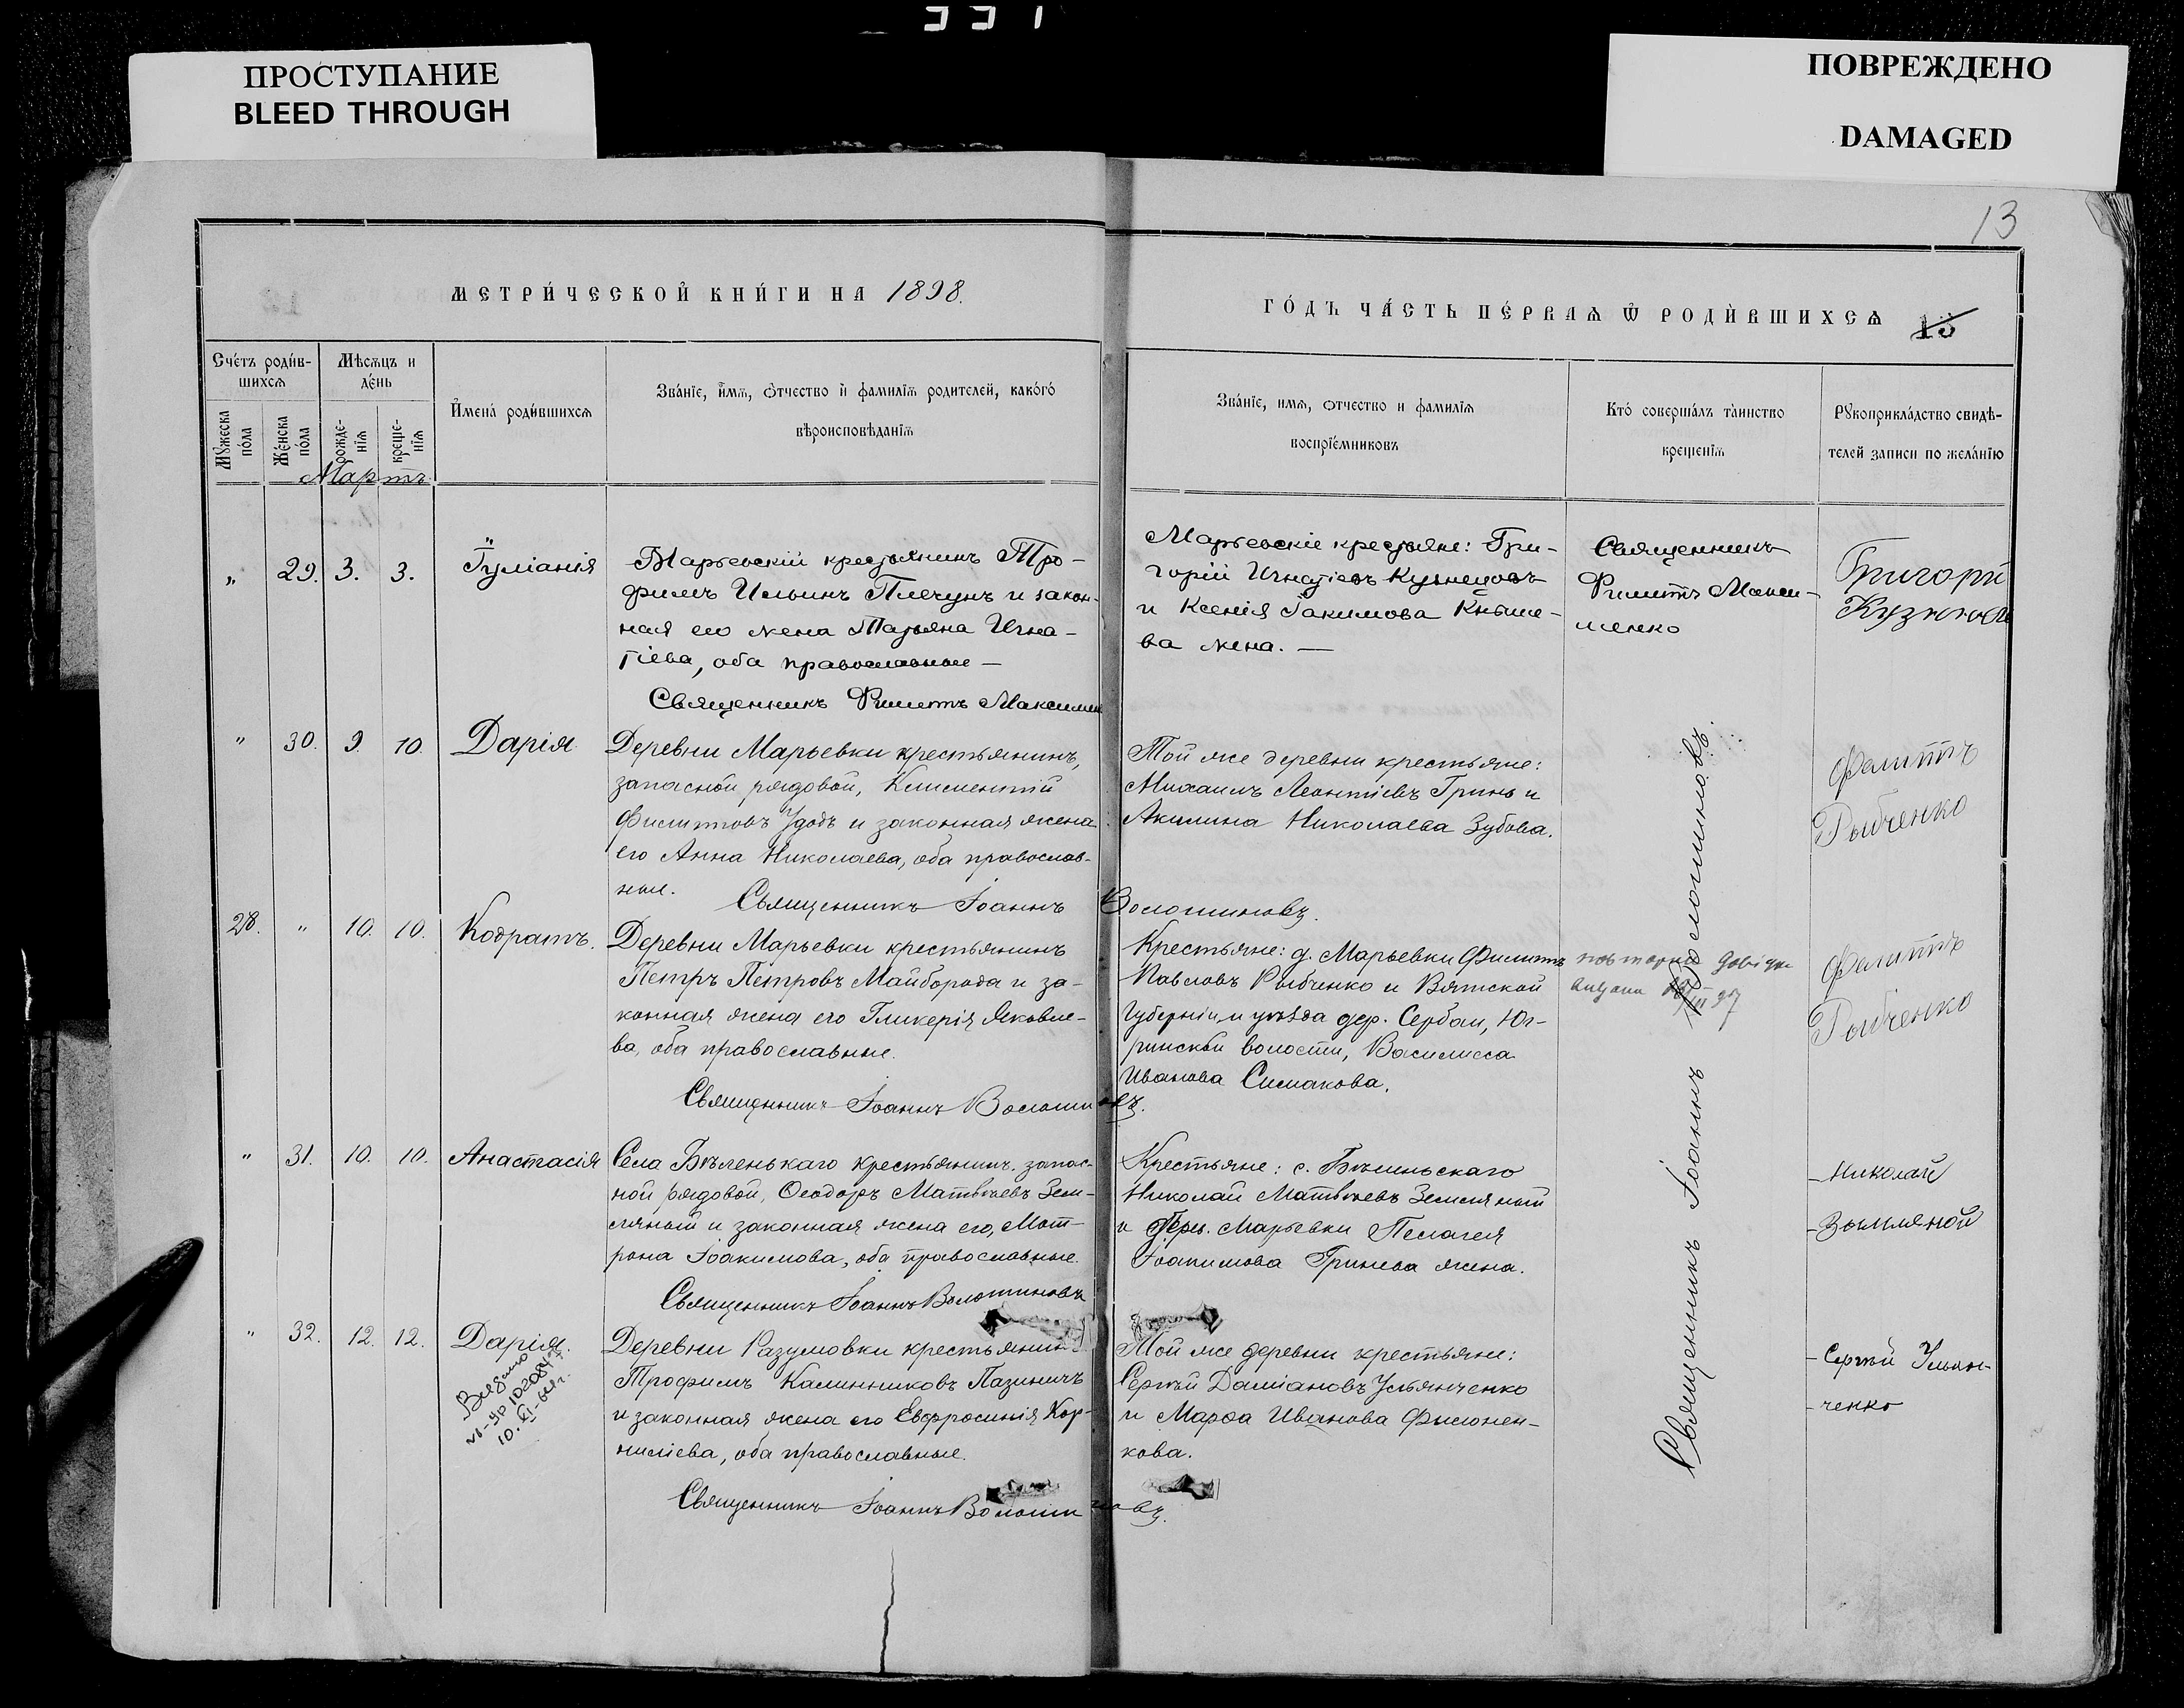 ПРОСТУПАНИЕ
BLEED THROUGH
ПОВРЕЖДЕНО
DAMAGED
13
МЕТРИ́ЧЕСКОЙ КНИ́ГИ НА 1898.
ГО́ДЪ ЧА́СТЬ ПЕ́РВАѦ Ѿ РОДИ́ВШИХСѦ 13
Сче́тъ роди́в-
шихсѧ
Мѣсѧцъ и
де́нь
Мꙋ́жеска
по́ла
Же́нска
по́ла
рожде-
нїѧ
креще-
нїѧ
И҆мена́ роди́вшихсѧ
Зва́нїе, и҆́мѧ, ѻ҆́тчество и҆ фами́лїѧ родителей, како́гѡ
вѣроисповѣданїѧ
Зва́нїе, имѧ, ѻтчество и фамилїѧ
воспрїе́мниковъ
Кто́ соверша́лъ та́инство
крещенїѧ
Рꙋкоприкла́дство свидѣ-
телей записи по жела́нїю
Мартъ
" 29. 3. 3. Іуліанія
Марьевскій крестьянинъ Тро-
фимъ Ильинъ Плечунъ и закон-
ная его жена Татьяна Игна-
тіева, оба православные —
Священникъ Филиппъ Максимен
Марьевскіе крестьяне: Гри-
горій Игнатіевъ Кузнецовъ
и Ксенія Іакимова Кныше-
ва жена. —
Священникъ
Филиппъ Макси-
менко
Григори
" 30. 9. 10. Дарія
Деревни Марьевки крестьянинъ,
запасной рядовой, Климентій
Филипповъ Удодъ и законная жена
его Анна Николаева, оба православ-
ные.
Священникъ Іоаннъ Волошиновъ.
Той же деревни крестьяне:
Михаилъ Леонтіевъ Гринь и
Акилина Николаева Зубова.
Филиппъ
Рыбченко
28. " 10. 10. Кодратъ.
Деревни Марьевки крестьянинъ
Петръ Петровъ Майборода и за-
конная жена его Гликерія Яковле-
ва, оба православные.
Священникъ Іоаннъ Волошиновъ.
Крестьяне: д. Марьевки Филиппъ
Павловъ Рыбченко и Вятской
Губерніи и уѣзда дер. Сербаи, Юг-
ринской волости, Василисса
Иванова Симакова.
Филиппъ
Рыбченко
" 31. 10. 10. Анастасія
Села Бѣленькаго крестьянинъ запас-
ной рядовой, Ѳеодоръ Матвѣевъ Зем-
ляный и законная жена его, Мат-
рона Іоакимова, оба православные.
Священникъ Іоаннъ Волошиновъ
Крестьяне: с. Бѣленьскаго
Николай Матвѣевъ Земляный
и дерев. Марьевки Пелагея
Іоакимова Гринева жена.
Николай
Зымляной
" 32. 12. 12. Дарія.
Видано
10.XI-64г.
Деревни Разумовки крестьянинъ
Трофимъ Калинниковъ Пазиничъ
и законная жена его Евфросинія Кор-
нилієва, оба православные.
Священникъ Іоаннъ Волошиновъ.
Той же деревни крестьяне:
Сергѣй Даміановъ Ульянченко
и Марѳа Иванова Филонен-
кова.
Сергѣй Ульян-
ченко
Священникъ Іоаннъ Волошиновъ.